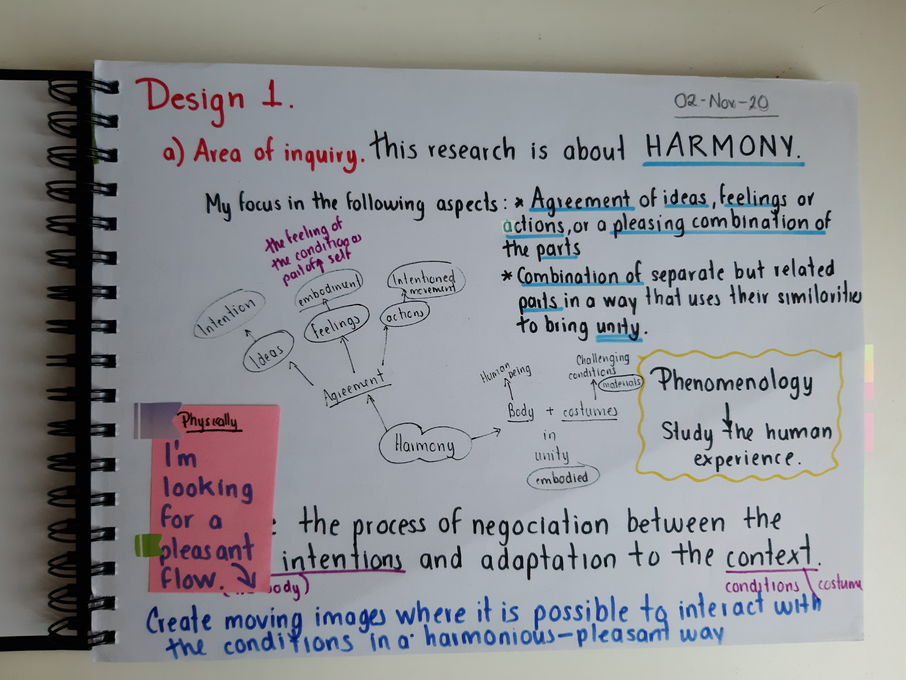 Design 1.
02-Nov-20
a) Area of inquiry. this research is about HARMONY.
My focus in the following aspects: * Agreement of ideas, feelings or
actions, or a pleasing combination of
the parts
* Combination of separate but related
parts in a way that uses their similarities
to bring unity.
the feeling of
the condition as
part of self
Intention
embodiment
Intentioned
movement
Ideas
Feelings
actions
Agreement
Harmony
Human
being
Challenging
conditions
materials
Body + costumes
in
unity
embodied
Phenomenology
Study the human
experience.
Physically
I'm
looking
for a
pleasant
flow.
: the process of negociation between the
intentions and adaptation to the context.
body)
conditions costume
Create moving images where it is possible to interact with
the conditions in a harmonious-pleasant way